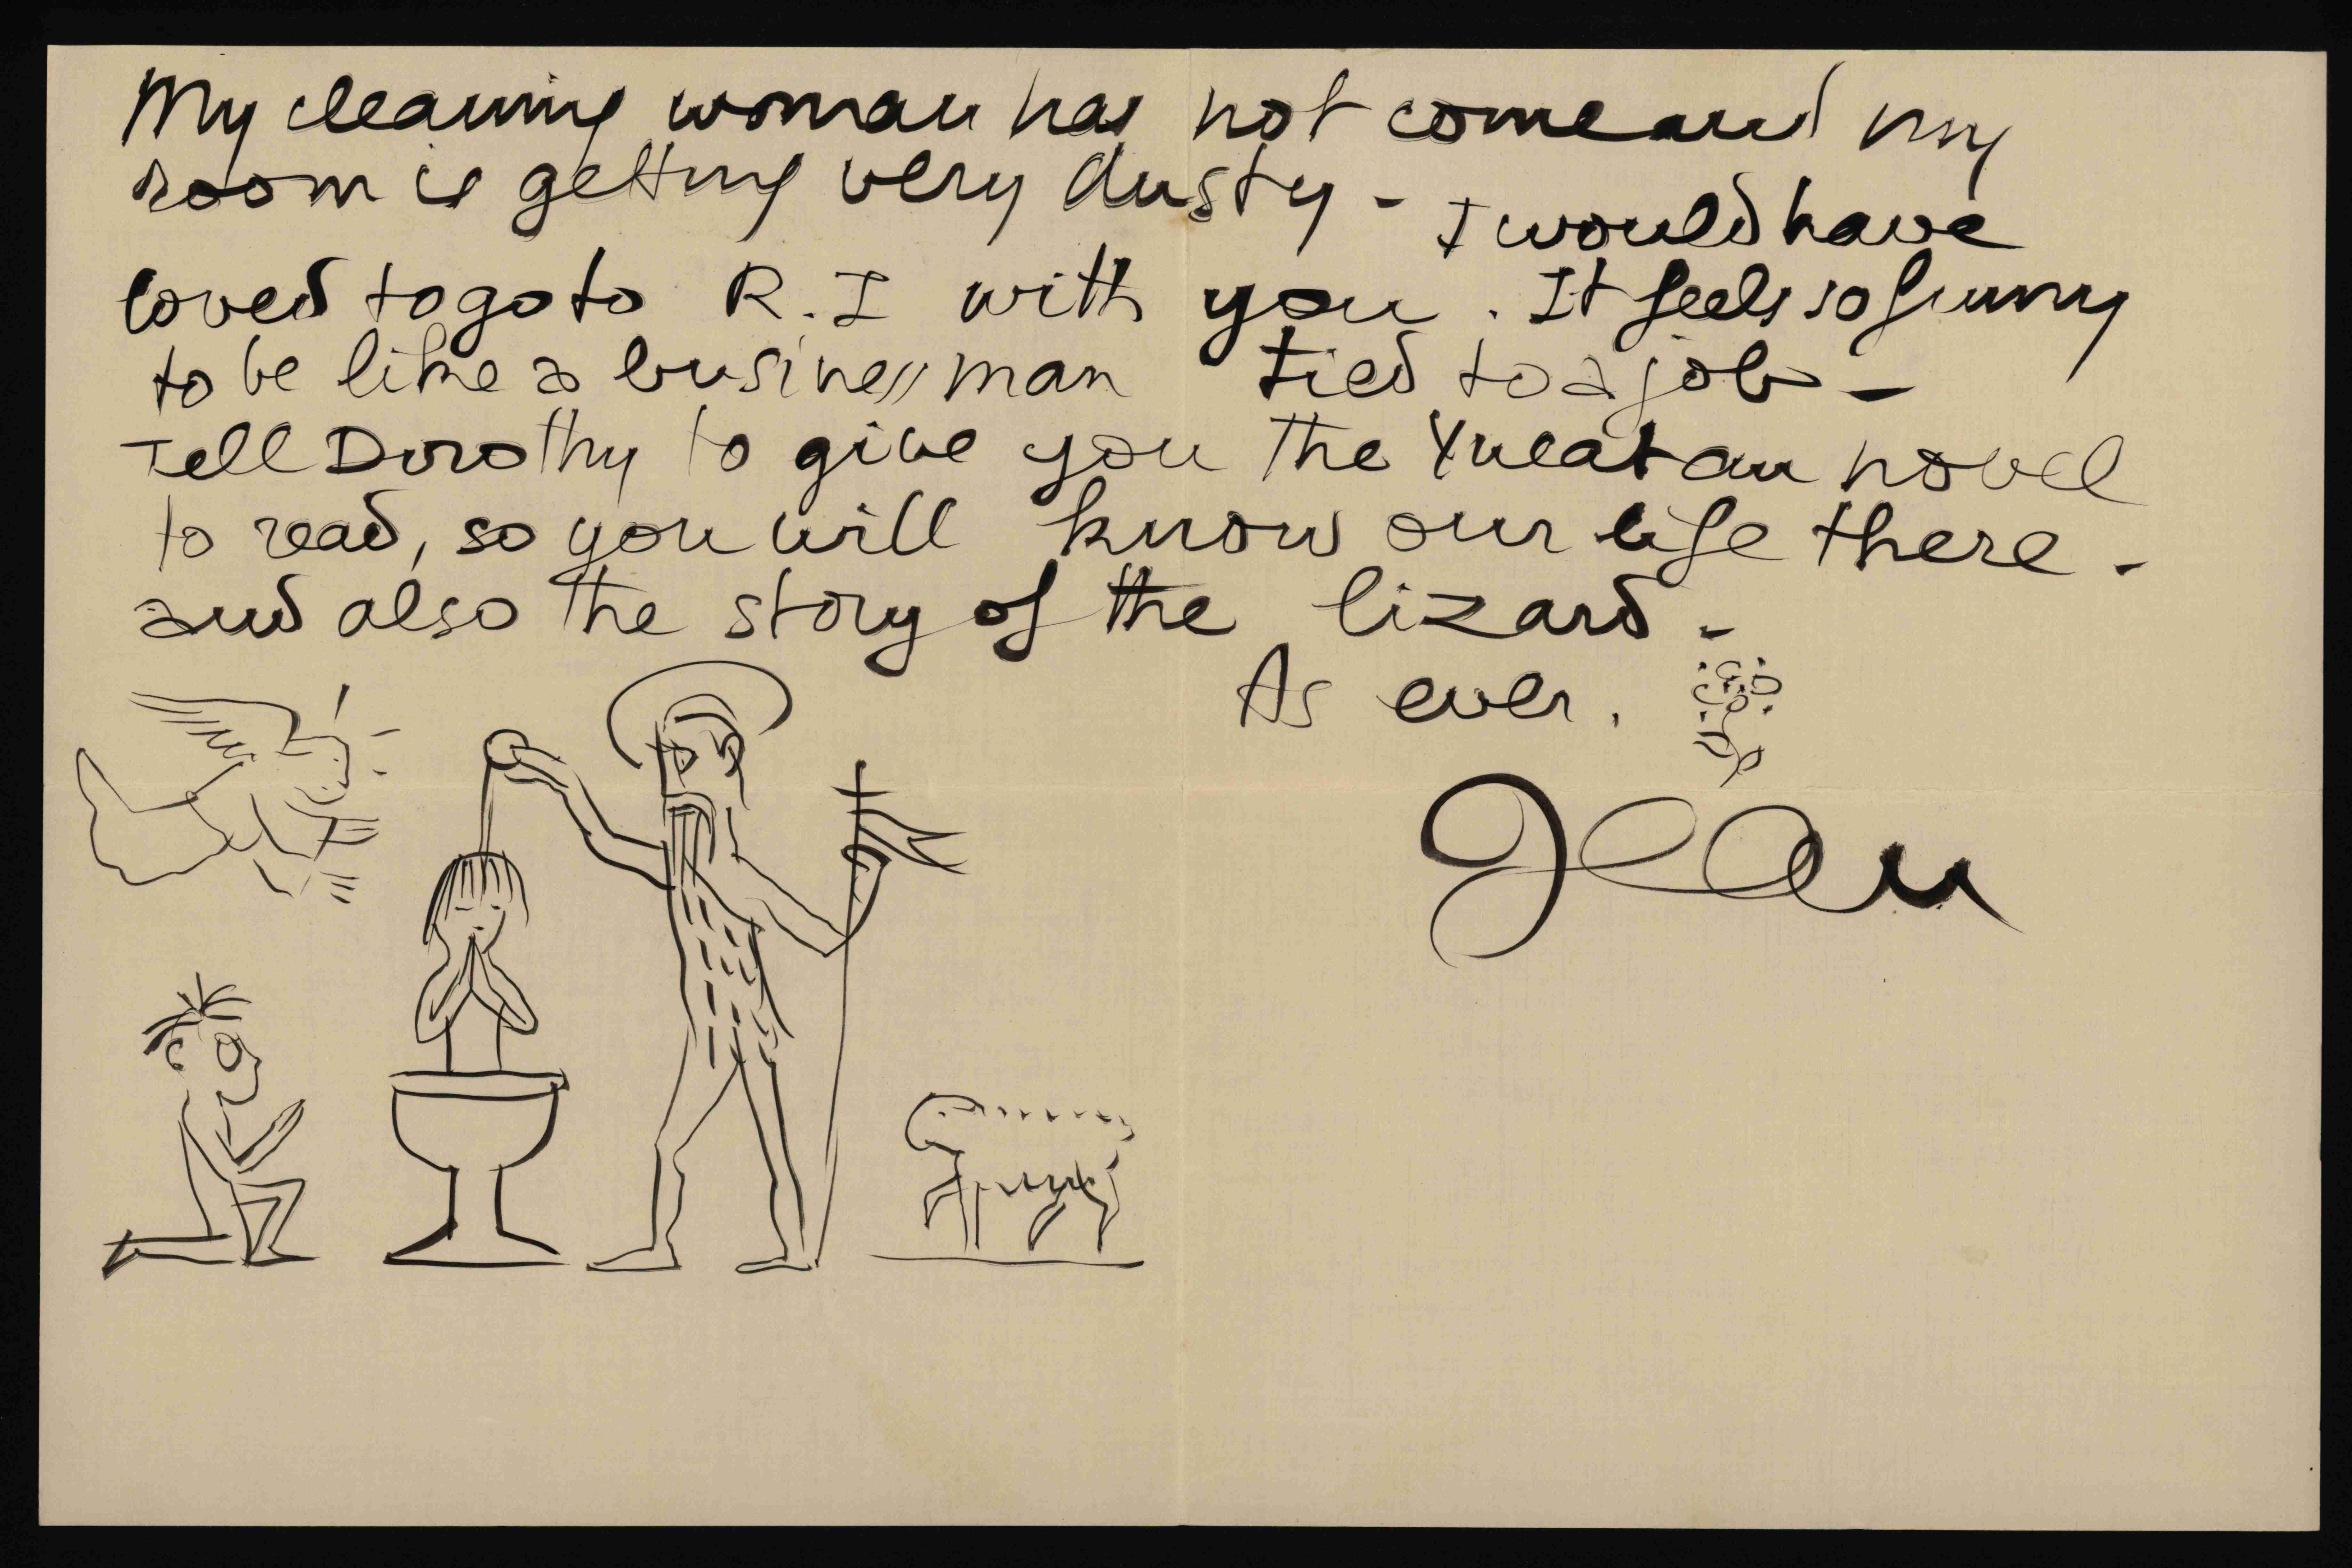 My cleaning woman has not come and my
room is getting very dusty - I would have
loved to go to R.I with you. It feels so funny
to be like a business man tied to a job -
Tell Dorothy to give you the Yucatan novel
to read, so you will know our life there -
and also the story of the lizard -
As ever.
Jean